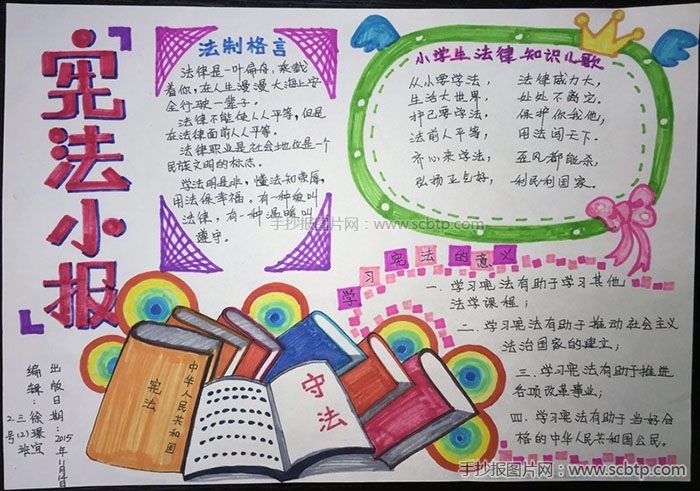 「宪法小报」
法制格言
法律是一叶扁舟，承载
着你，在人生漫漫大海上安
全行驶一辈子。
法律不能使人人平等，但是
在法律面前人人平等。
法律职业是社会地位是一个
民族文明的标志。
学法明是非，懂法知荣辱，
用法保幸福。有一种敬叫
法律，有一种温暖叫
遵守。
小学生法律知识儿歌
从小要学法， 法律威力大，
生活大世界， 处处不离它。
自己要学法， 保护你我他，
法前人平等， 用法闯天下。
齐心来学法， 歪风都能杀，
弘扬正气好， 利民利国家。
学习宪法的意义
一、学习宪法有助于学习其他
法学课程；
二、学习宪法有助于推动社会主义
法治国家的建文；
三、学习宪法有助于推进
各项改革事业；
四、学习宪法有助于当好合
格的中华人民共和国公民。
中华人民共和国
宪法
守法
出版日期：2015年11月12日
编辑：徐璟宜
三(2)班
2号
手抄报图片网：www.scbtp.com
手抄报图片网：www.scbtp.com